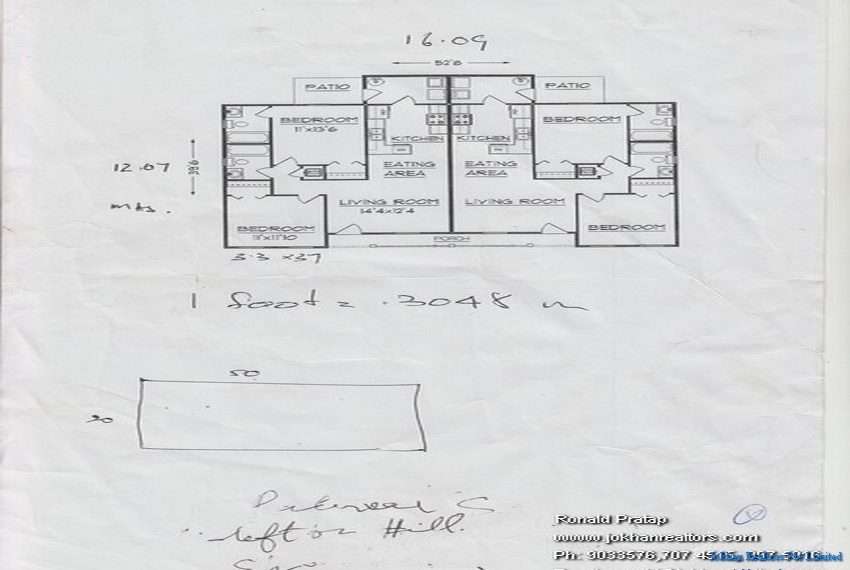 16.09
52'8
PATIO PATIO
BEDROOM BEDROOM
11'x13'6
KITCHEN KITCHEN
12.07
mts.
EATING AREA EATING AREA
LIVING ROOM LIVING ROOM
14'4x12'4
BEDROOM BEDROOM
11'x11'10
PORCH
3.3 x 37
1 foot = .3048 m
50
20
left on Hill.
Ronald Pratap
www.jokhanrealtors.com
Ph: 9033576,707